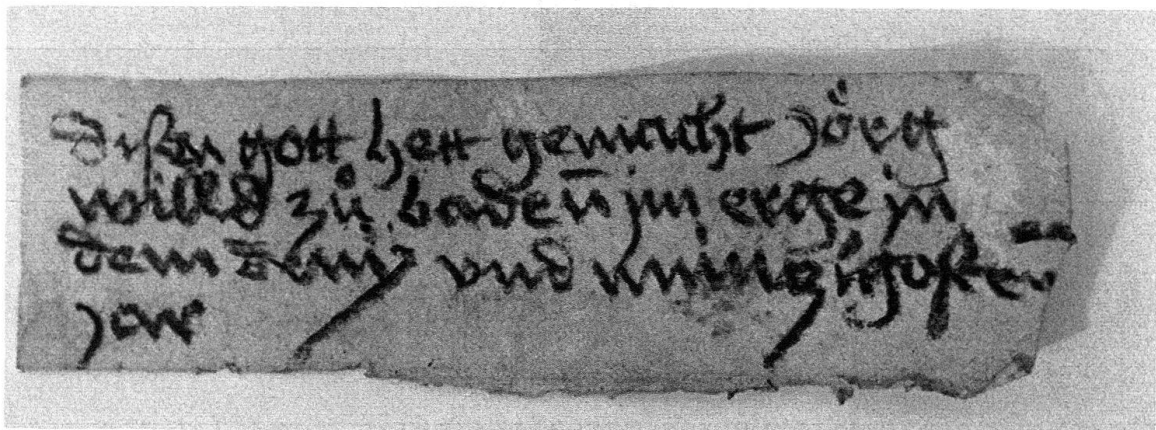 disen gott hett gemacht jörg
willd zů baden im erge in
dem und nüinzigosten
jar